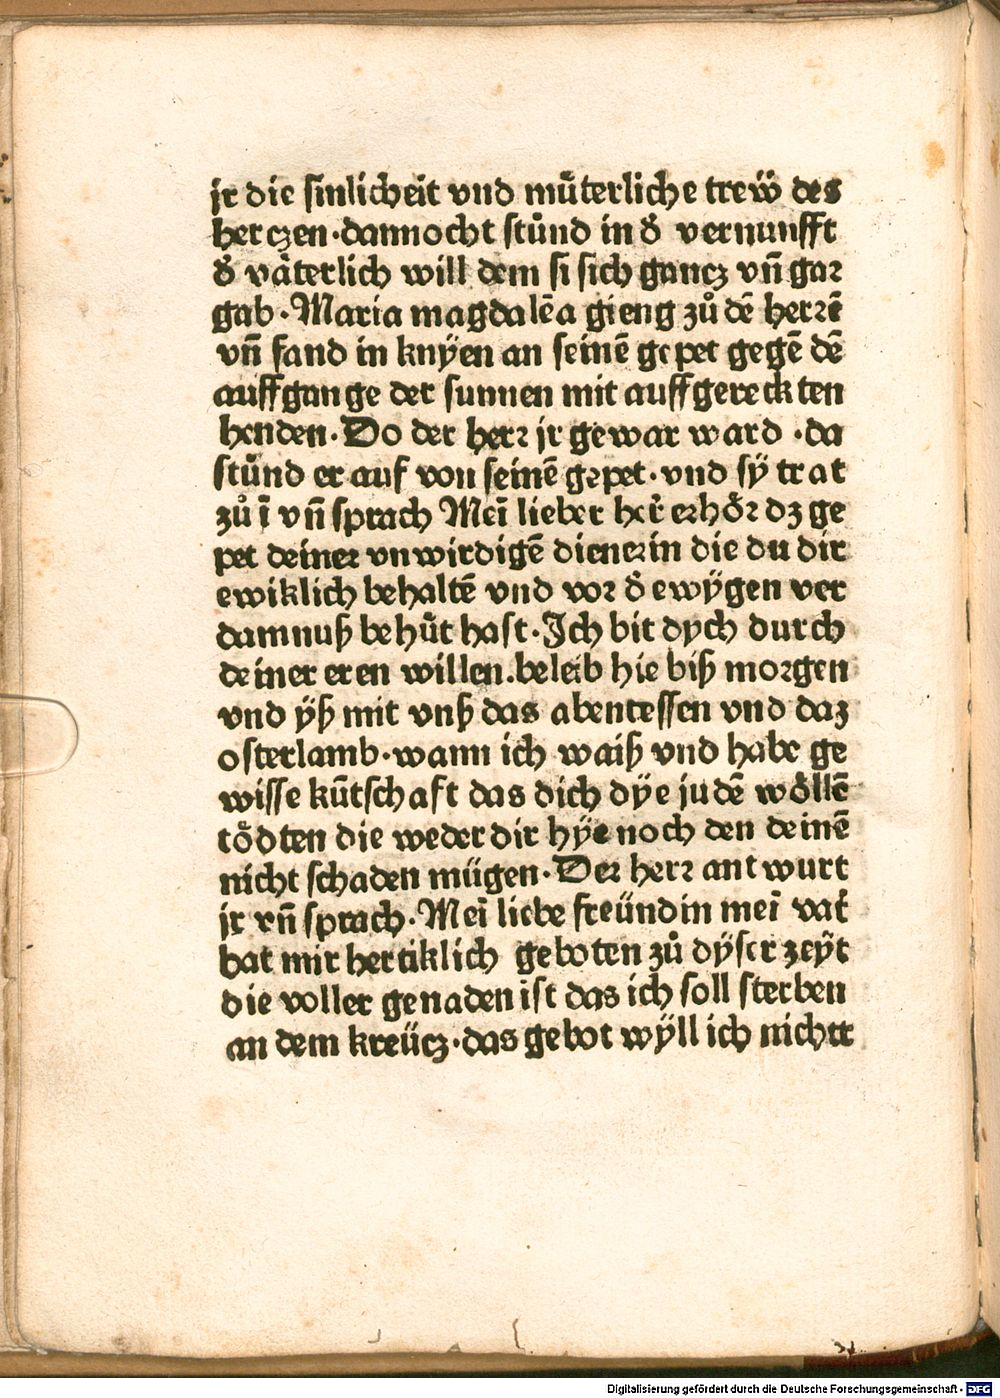 jr die sinlicheit vnd müterliche trew̎ des
herczen·dannocht stůnd in d̕ vernunfft
d̕ väterlich will dem si sich gancz vn̄ gar
gab·Maria magdalēa gieng zů dē herrē
vn̄ fand in knÿen an seinē gepet gegē dē
auffgange der sunnen mit auffgereckten
henden·Do der herr jr gewar ward·da
stůnd er auf von seinē gepet·vnd sÿ trat
zů ī vn̄ sprach Meī lieber her̄ erhör dz ge
pet deiner vnwirdigē dienerin die du dir
ewiklich behaltē vnd vor d̕ ewÿgen ver
damnuß behüt hast·Jch bit dych durch
deiner eren willen.beleib hie biß morgen
vnd ÿß mit vnß das abentessen vnd daz
osterlamb·wann ich waiß vnd habe ge
wisse kūtschaft das dich dÿe judē wöllē
tödten die weder dir hÿe noch den deinē
nicht schaden mügen·Der herr antwurt
jr vn̄ sprach·Meī liebe freündin meī vat̕
hat mir hertiklich geboten zů dÿser zeÿt
die voller genaden ist das ich soll sterben
an dem kreücz·das gebot wÿll ich nicht
Digitalisierung gefördert durch die Deutsche Forschungsgemeinschaft - DFG